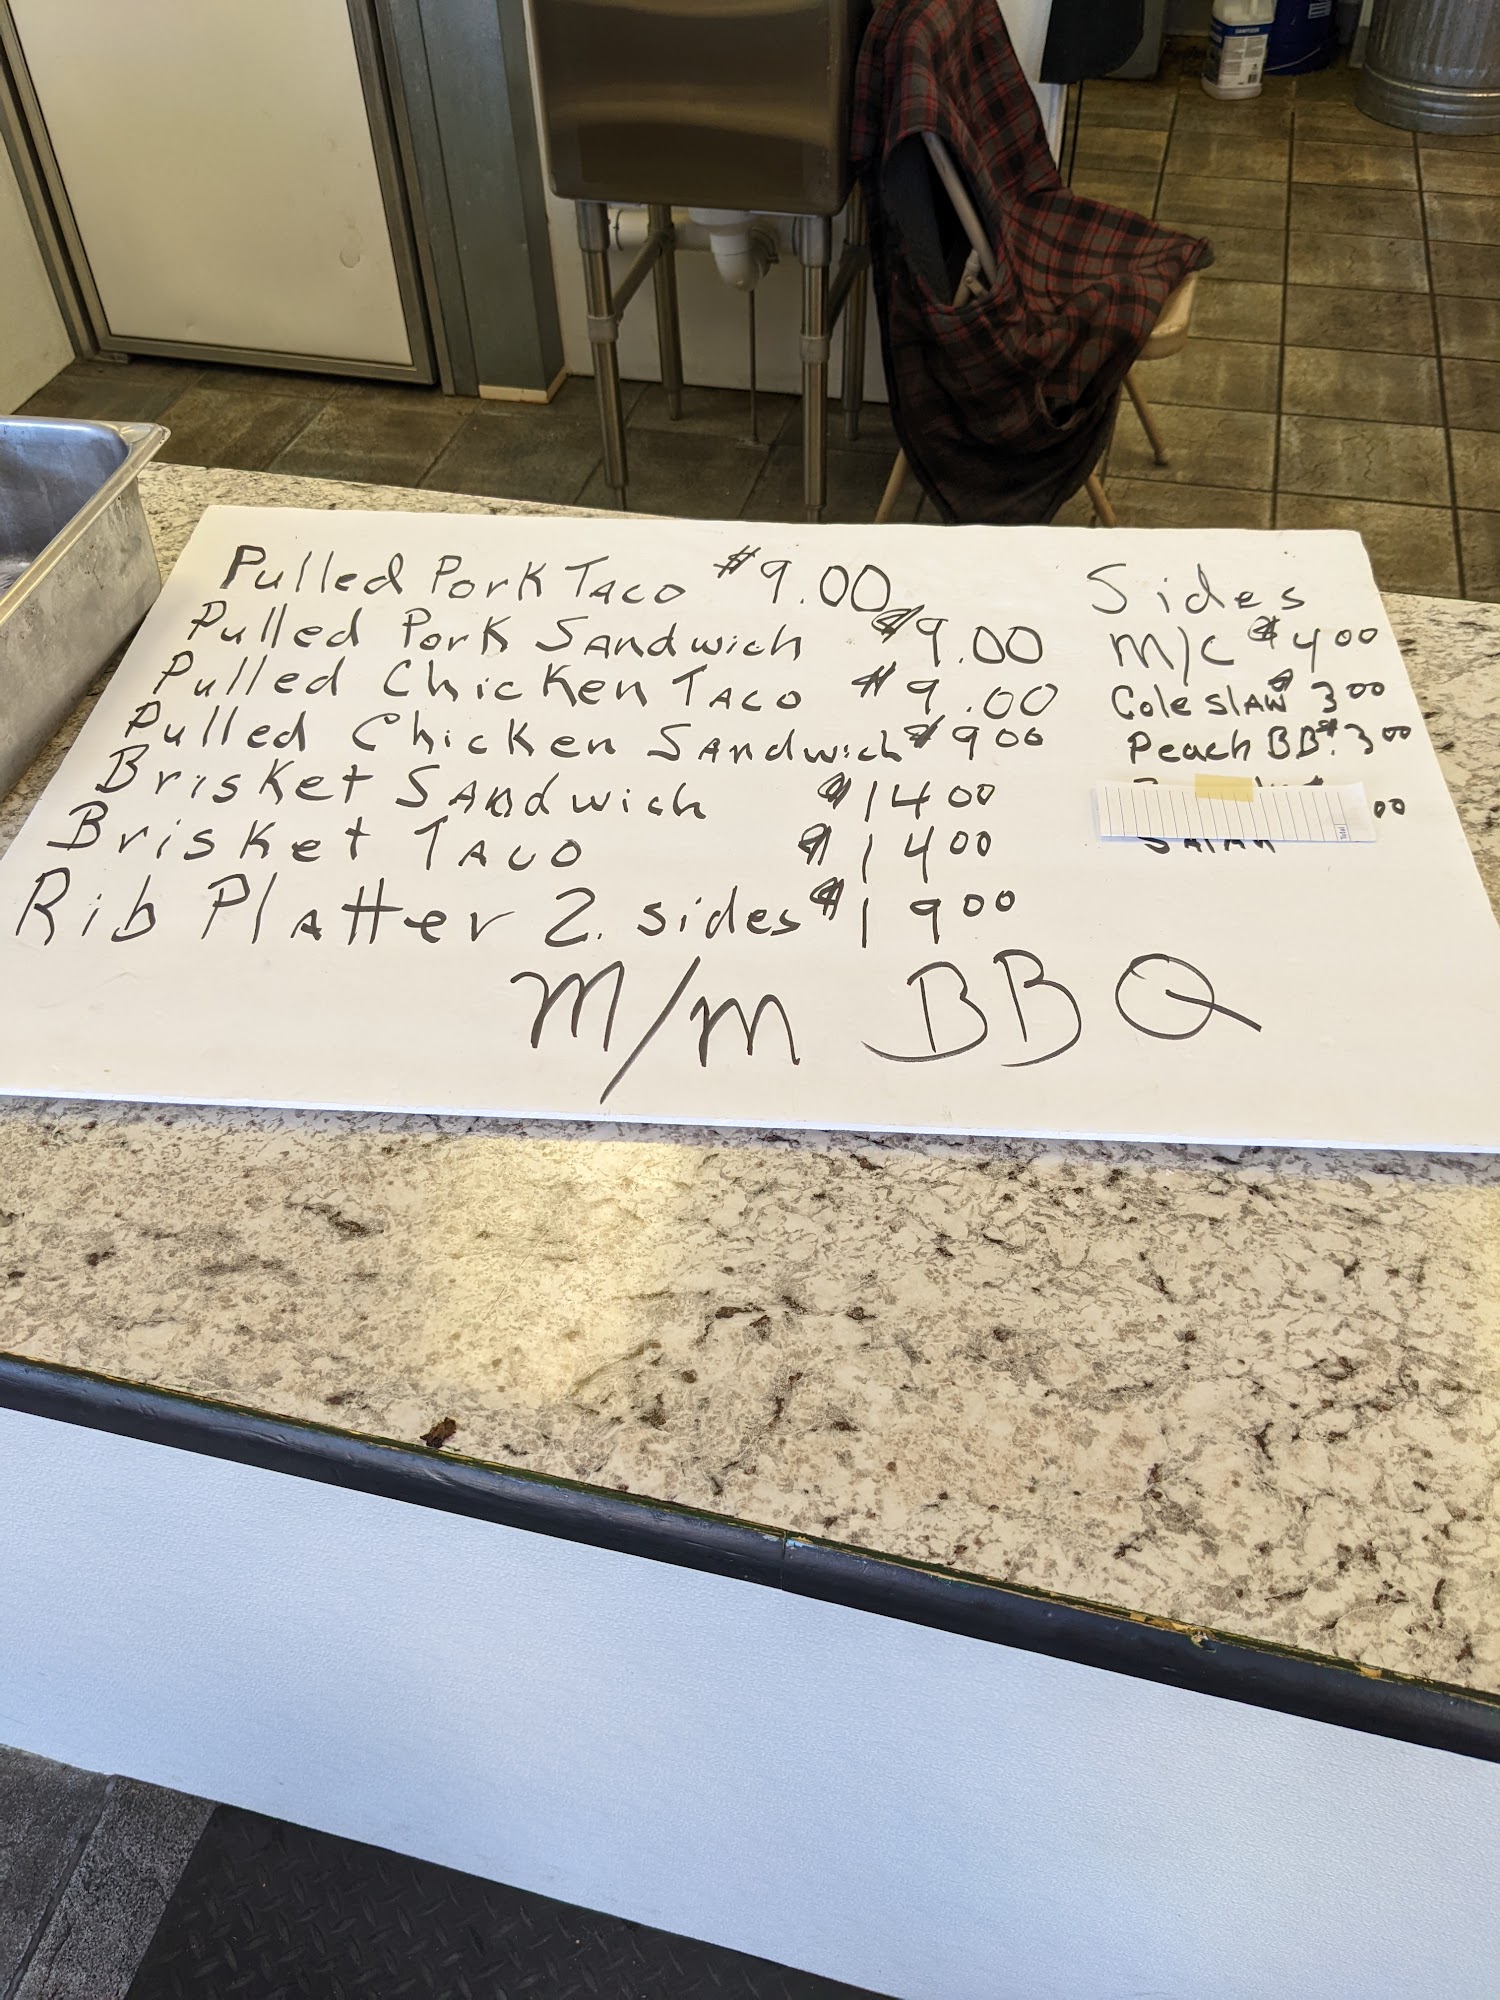 Pulled Pork Taco $9.00
Pulled Pork Sandwich $9.00
Pulled Chicken Taco $9.00
Pulled Chicken Sandwich $9 00
Brisket Sandwich $14 00
Brisket Taco $14 00
Rib Platter 2. sides $19 00
M/M BBQ
Sides
M/C $4 00
Cole slaw $3 00
Peach BB. $3 00
00
Total